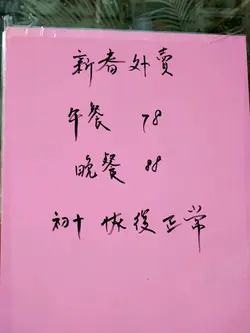 新春外賣
午餐 78
晚餐 88
初十 恢復正常